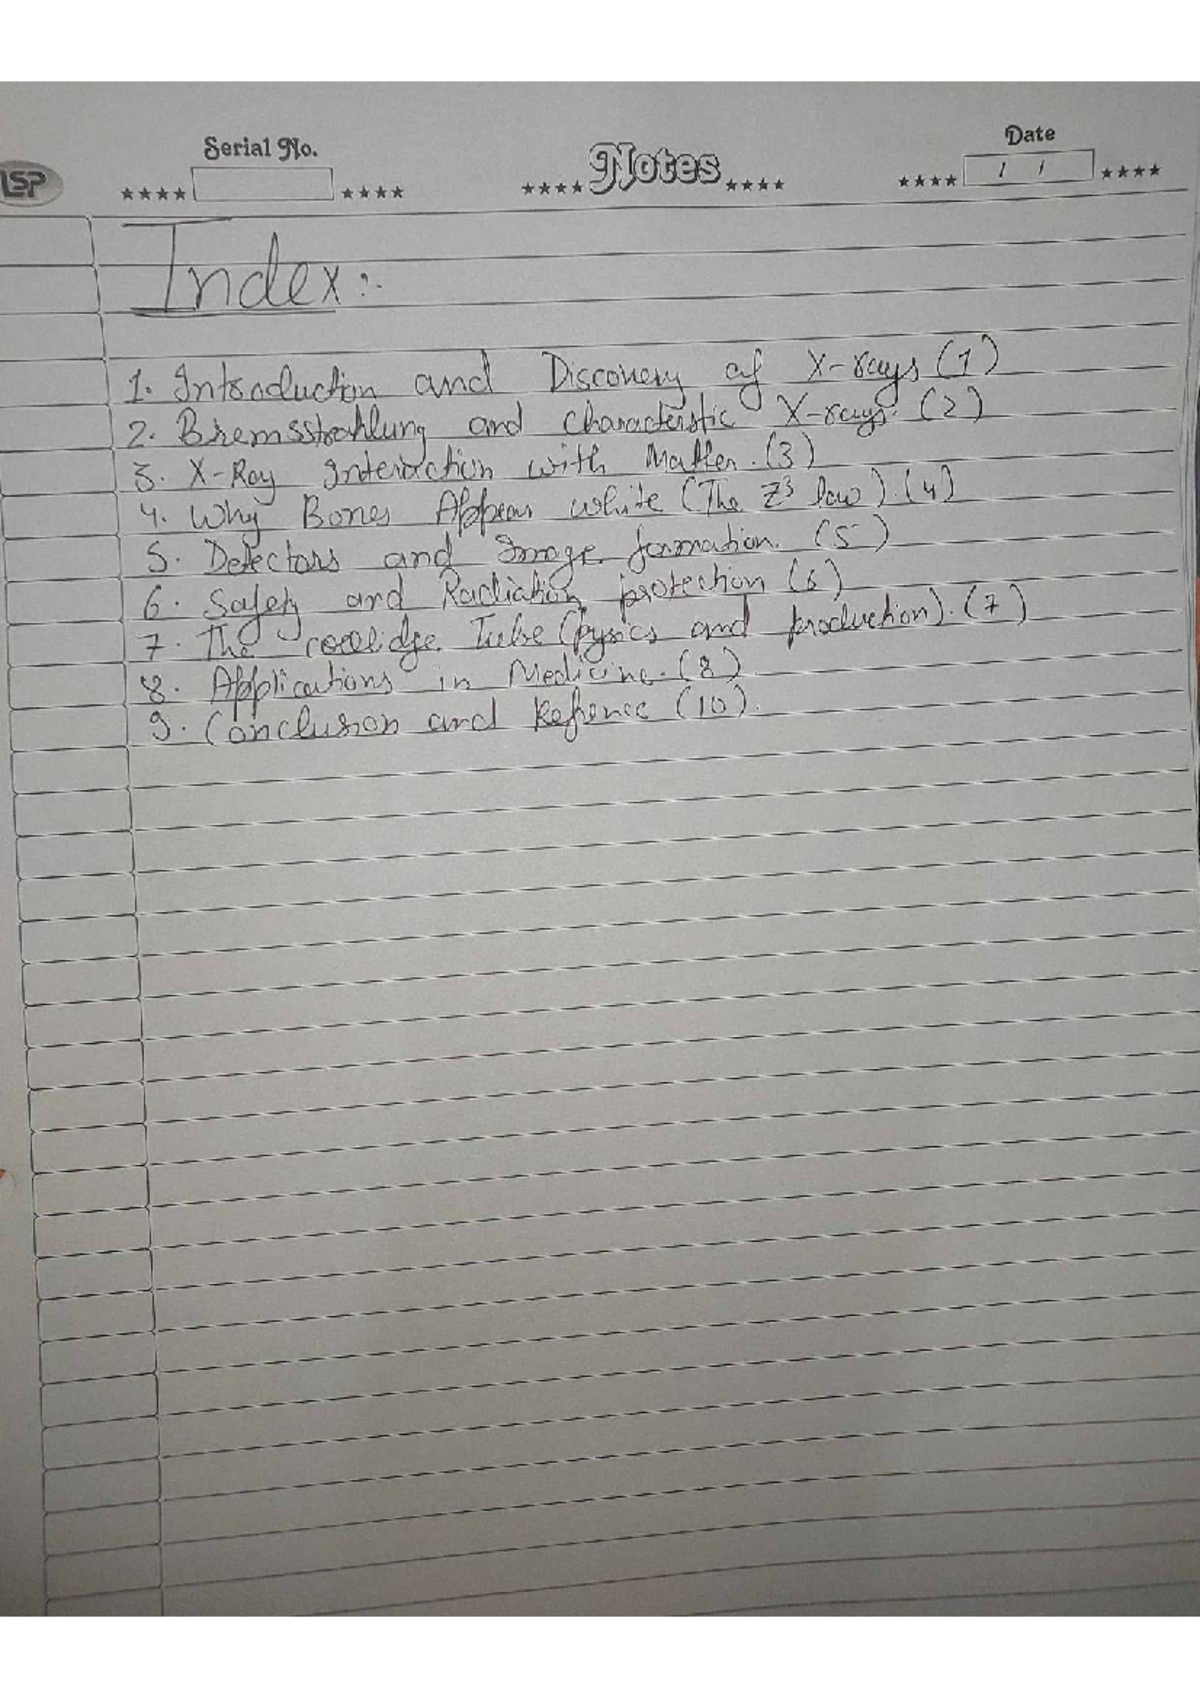 LSP
Serial No.
Notes
Date
Index:-
1. Introduction and Discovery of X-rays (1)
2. Bremsstrahlung and Characterstic X-rays. (2)
3. X-Ray Interaction with Matter. (3)
4. Why Bones Appear white (The Z³ law). (4)
5. Detectors and Image formation. (5)
6. Safety and Radiation protection (6)
7. The coolidge Tube (Pysics and production). (7)
8. Applications in Medicine. (8)
9. Conclusion and Refrence (10).